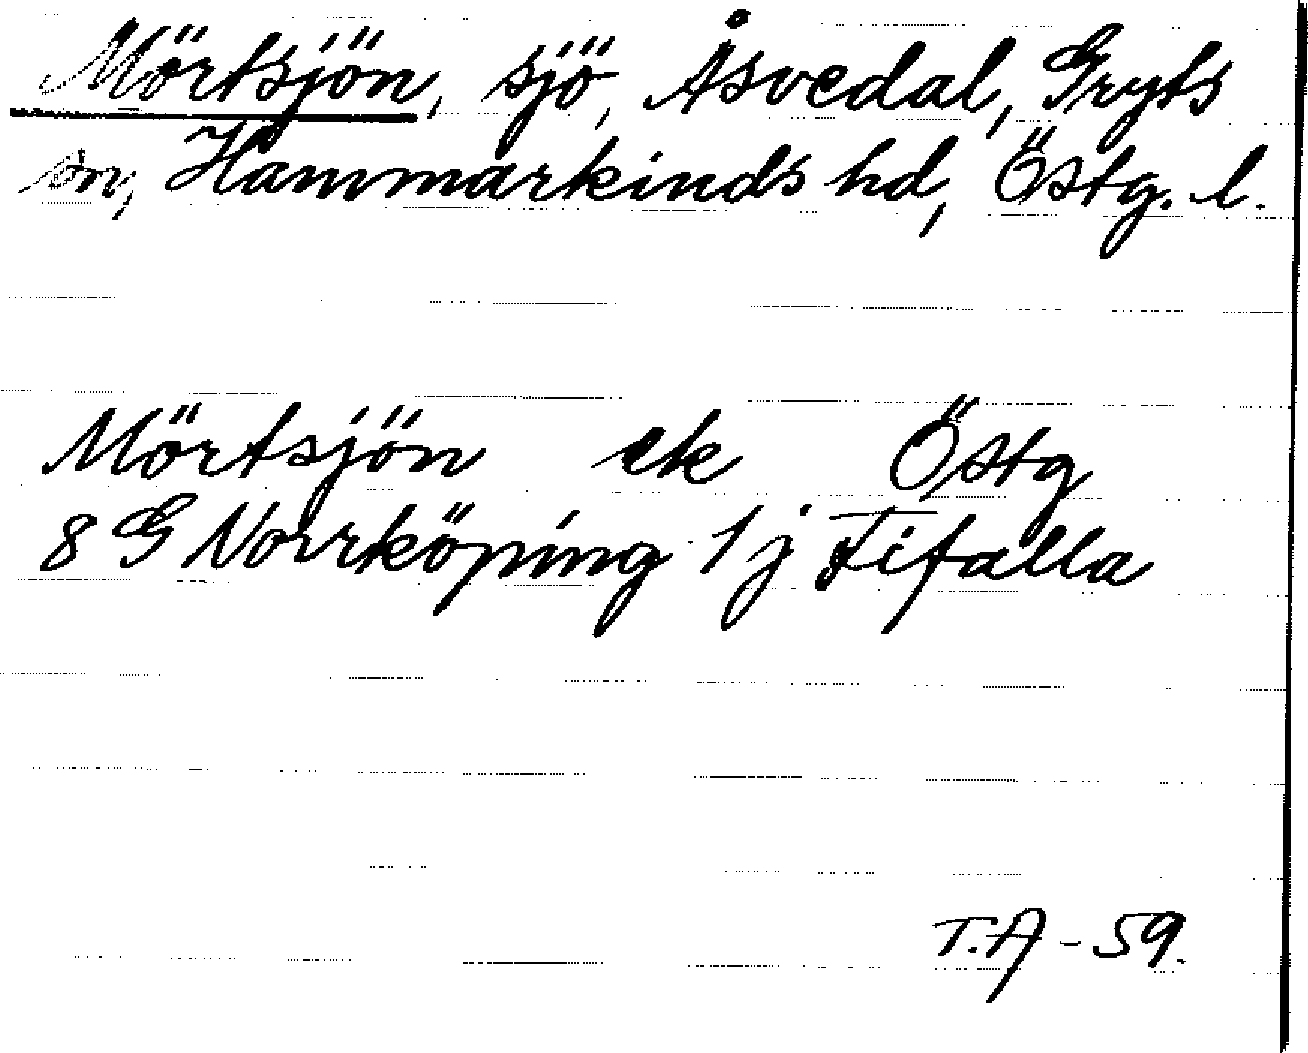 Mörtsjön, sjö, Åsvedal, Gryts
sn, Hammarkinds hd, Östg. l.
Mörtsjön ek Östg
8 G Norrköping 1 j Fifalla
T.A - 59.